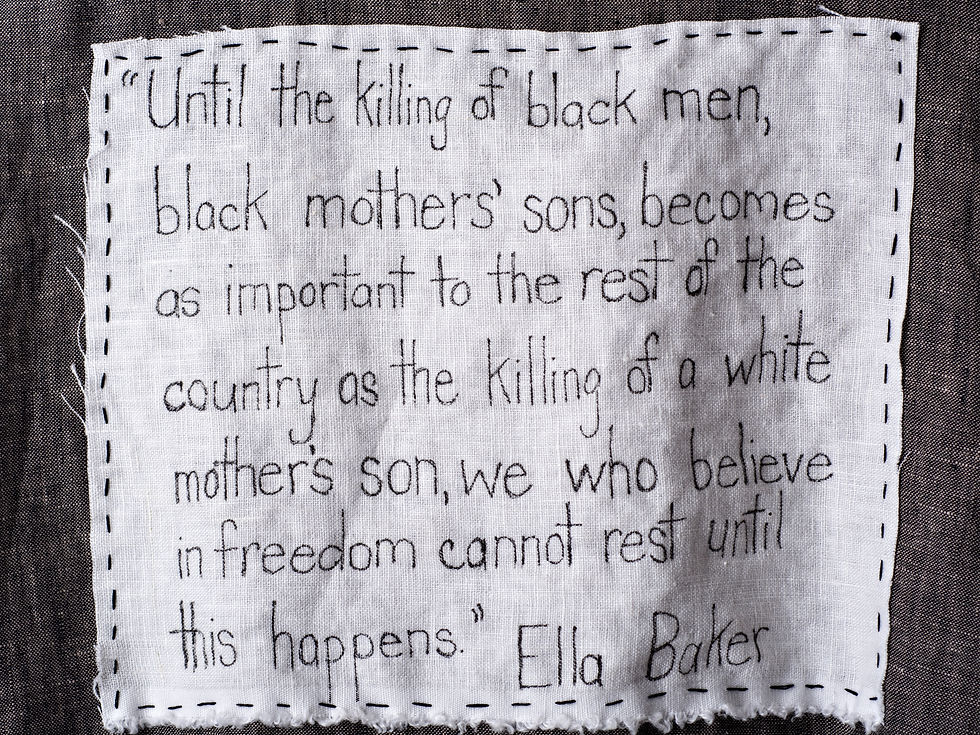 "Until the killing of black men,
black mothers' sons, becomes
as important to the rest of the
country as the killing of a white
mother's son, we who believe
in freedom cannot rest until
this happens." Ella Baker